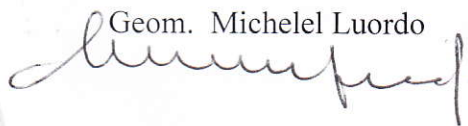 Geom. Michelel Luordo